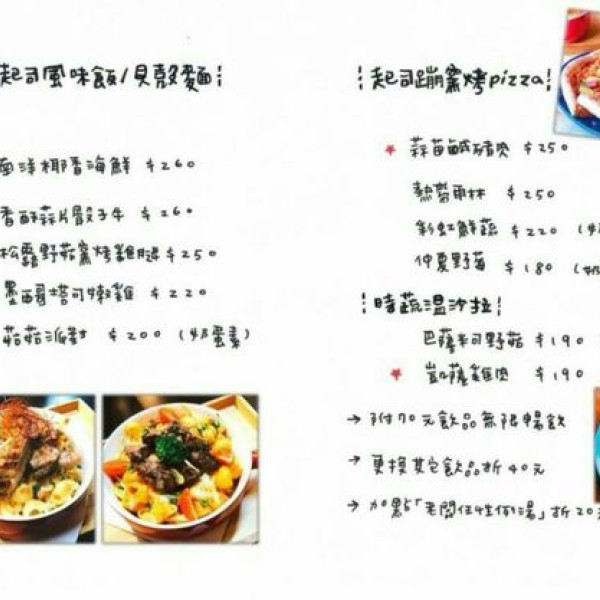 起司風味飯/貝殼麵
南洋椰香海鮮 $260
香酥蒜片骰子牛 $260
松露野菇窯烤雞腿 $250
墨西哥塔可嫩雞 $220
菇菇派對 $200 (奶蛋素)
起司蹦窯烤pizza
★ 蒜苗鹹豬肉 $250
熱帶雨林 $250
彩虹鮮蔬 $220 (奶
仲夏野莓 $180 (奶
時蔬溫沙拉
巴薩米可野菇 $190
★ 凱薩雞肉 $190
→ 附70元飲品無限暢飲
→ 更換其它飲品折40元
→ 加點「老闆任性例湯」折20元